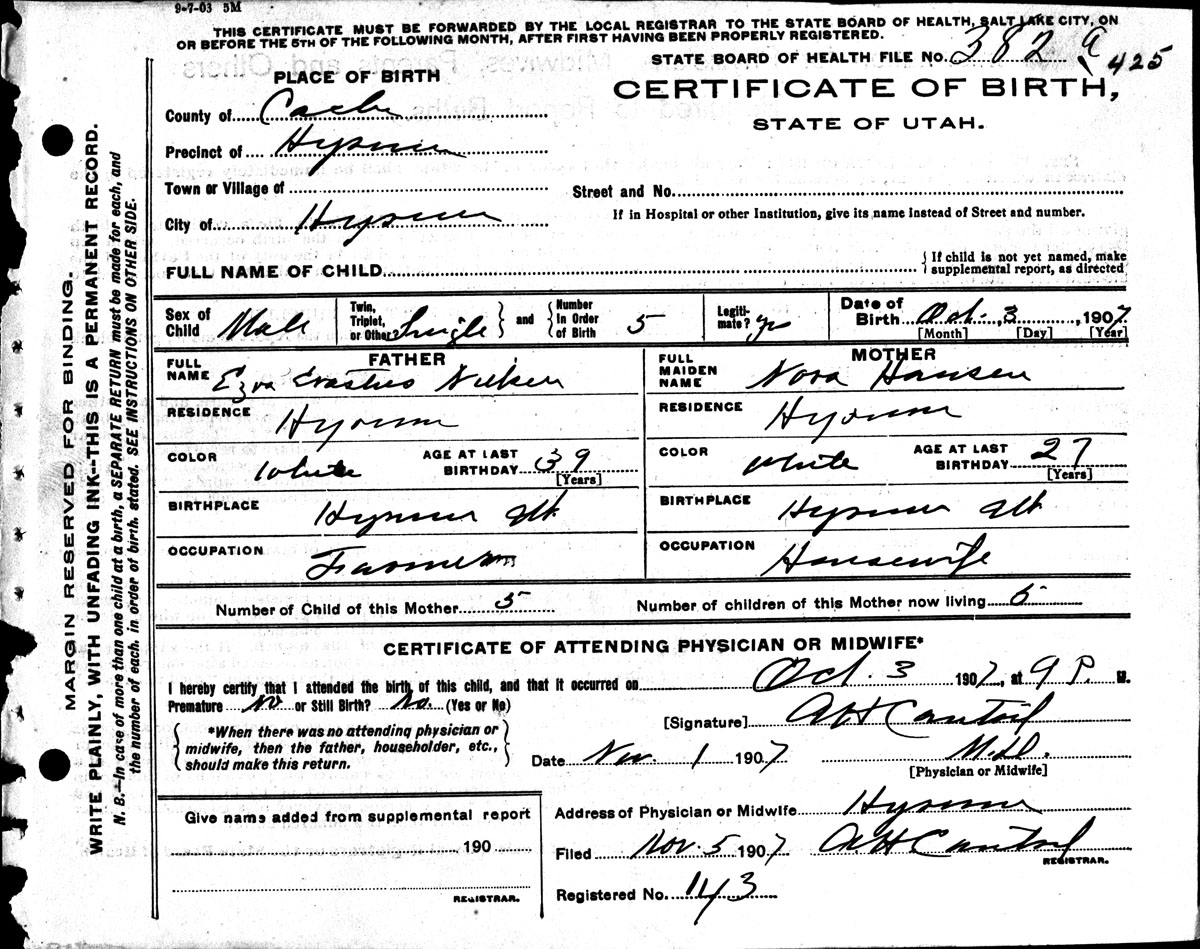 9-7-03 5M
THIS CERTIFICATE MUST BE FORWARDED BY THE LOCAL REGISTRAR TO THE STATE BOARD OF HEALTH, SALT LAKE CITY, ON
OR BEFORE THE 5TH OF THE FOLLOWING MONTH, AFTER FIRST HAVING BEEN PROPERLY REGISTERED.
STATE BOARD OF HEALTH FILE No. 382 a 425
PLACE OF BIRTH
CERTIFICATE OF BIRTH,
STATE OF UTAH.
County of Cache
Precinct of Hyrum
Town or Village of
Street and No.
City of Hyrum
If in Hospital or other Institution, give its name instead of Street and number.
FULL NAME OF CHILD
{ If child is not yet named, make
supplemental report, as directed
Sex of Child Male
Twin, Triplet, or Other? Single } and { Number In Order of Birth 5
Legiti-mate? yes
Date of Birth Oct. 3, 1907
[Month] [Day] [Year]
FATHER
FULL NAME Ezra Erastus Nielsen
RESIDENCE Hyrum
COLOR White
AGE AT LAST BIRTHDAY 39
[Years]
BIRTHPLACE Hyrum Ut
OCCUPATION Farmer
MOTHER
FULL MAIDEN NAME Nora Hansen
RESIDENCE Hyrum
COLOR White
AGE AT LAST BIRTHDAY 27
[Years]
BIRTHPLACE Hyrum Ut
OCCUPATION Housewife
Number of Child of this Mother 5
Number of children of this Mother now living 5
CERTIFICATE OF ATTENDING PHYSICIAN OR MIDWIFE*
I hereby certify that I attended the birth of this child, and that it occurred on Oct. 3 1907, at 9 P. M.
Premature No or Still Birth? No. (Yes or No)
[Signature] A H
*When there was no attending physician or
midwife, then the father, householder, etc.,
should make this return.
Date Nov. 1 1907 M.D.
[Physician or Midwife]
Give name added from supplemental report
190
REGISTRAR.
Address of Physician or Midwife Hyrum
Filed Nov. 5 1907 A H
REGISTRAR.
Registered No. 143
MARGIN RESERVED FOR BINDING.
WRITE PLAINLY, WITH UNFADING INK--THIS IS A PERMANENT RECORD.
N. B.--In case of more than one child at a birth, a SEPARATE RETURN must be made for each, and
the number of each, in order of birth, stated. SEE INSTRUCTIONS ON OTHER SIDE.